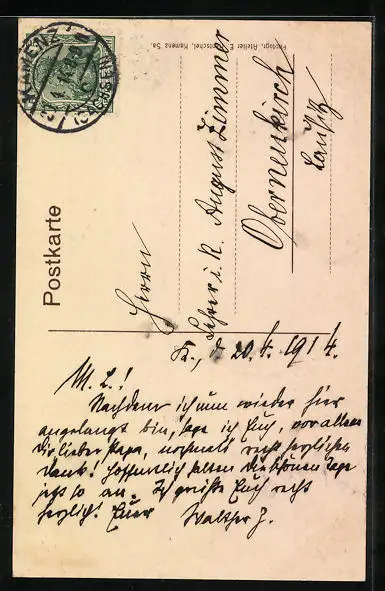 Postkarte
Photogr. Atelier E. Kamenz Sa.
KAMENZ
Herrn
Lehrer i. R. August Zimmer
Oberneukirch
Lausitz
K., d. 20.4.1914.
M. L.!
Nachdem ich nun wieder hier
angelangt bin, sage ich Euch, vor allem
Dir lieber Papa, nochmals recht herzlichen
Dank! Hoffentlich halten die schönen Tage
jetzt so an. Ich grüße Euch recht
herzlich! Euer Walther Z.